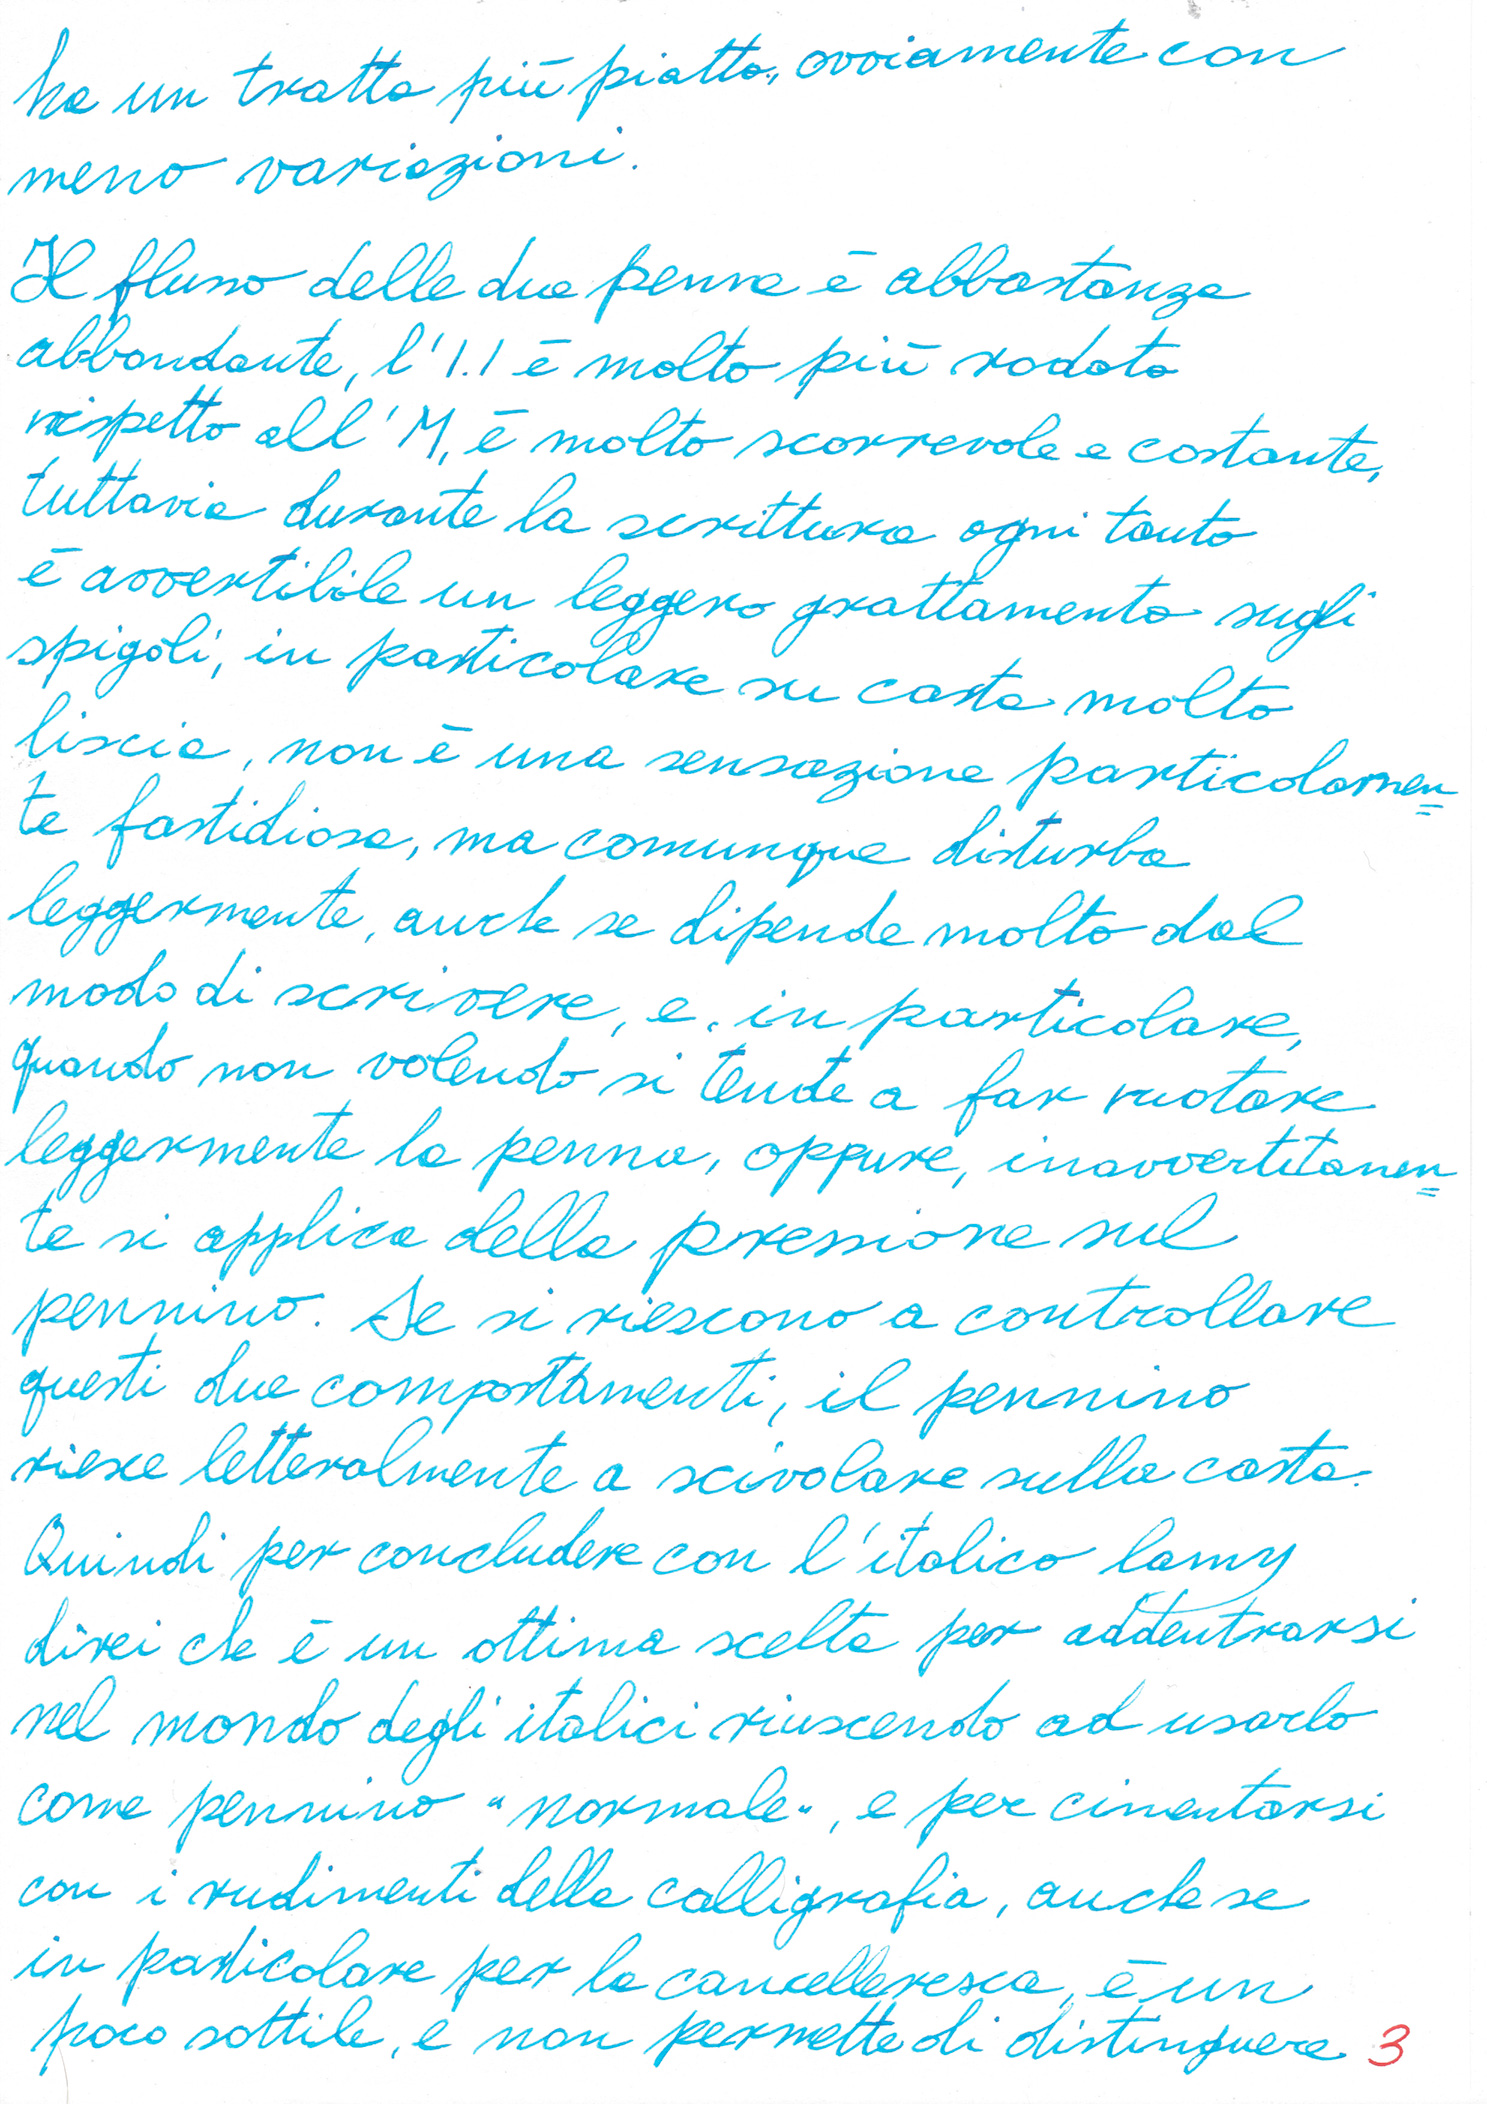 ha un tratto più piatto, ovviamente con
meno variazioni.
Il flusso delle due penne è abbastanza
abbondante, l'1.1 è molto più rodato
rispetto all'M, è molto scorrevole e costante,
tuttavia durante la scrittura ogni tanto
è avvertibile un leggero grattamento sugli
spigoli, in particolare su carta molto
liscia, non è una sensazione particolarmen=
te fastidiosa, ma comunque disturba
leggermente, anche se dipende molto dal
modo di scrivere, e, in particolare,
quando non volendo si tende a far ruotare
leggermente la penna, oppure, inavvertitamen=
te si applica della pressione sul
pennino. Se si riescono a controllare
questi due comportamenti, il pennino
riesce letteralmente a scivolare sulla carta.
Quindi per concludere con l'italico lamy
direi che è un ottima scelta per addentrarsi
nel mondo degli italici riuscendo ad usarlo
come pennino "normale", e per cimentarsi
con i rudimenti della calligrafia, anche se
in particolare per la cancelleresca, è un
poco sottile, e non permette di distinguere 3